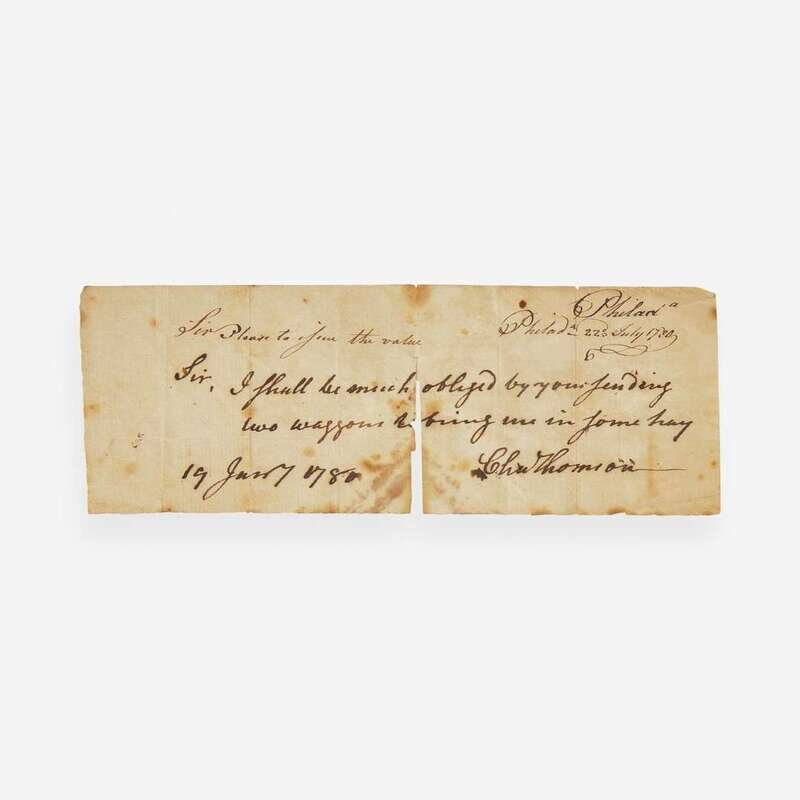 Philad^a
Sir Please to issue the value
Philad^a 22^d July 1780
Sir, I shall be much obliged by your sending
two waggons to bring me in some hay
19 Jan^y 1780
Cha^s Thomson